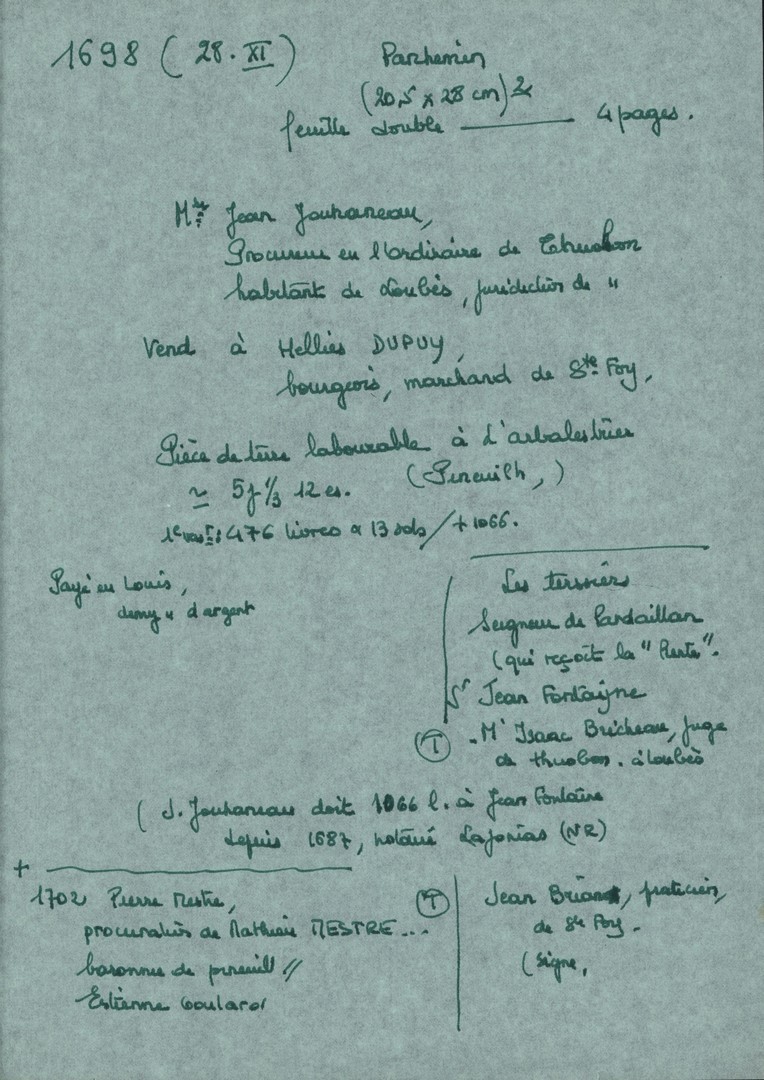 1698 (28.XI) Parchemin
(20,5 x 28 cm)
feuille double — 4 pages.
Jean Jouhaneau,
Procureur en l'ordinaire de Thuobon
habitant de Loubès, juridiction de "
Vend à Hellies DUPUY,
bourgeois, marchand de Ste Foy,
Pièce de terre labourable à L'arbalestrier
≃ 5j 1/3 12 es. (Pineuilh,)
476 livres 13 sols / + 1066.
Payé en Louis,
demy " d'argent
Les tenants
Seigneur de Pardaillan
(qui reçoit la "Rente".
Sr Jean Fontayne
(T) . Mr Isaac Bricheau, juge
de thuobon . à Loubès
(J. Jouhaneau doit 1066 l. à Jean Fontaine
depuis 1687, notarié Lajonias (NR)
+
1702 Pierre Mestre,
procuration de Mathieu MESTRE ...
baronnie de pineuill //
Estienne Goulard
(T) Jean Briand, praticien,
de Ste Foy.
(signe,